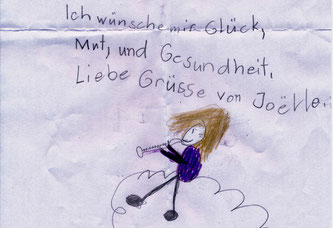 Ich wünsche mir Glück,
Mut, und Gesundheit.
Liebe Grüsse von Joëlle.